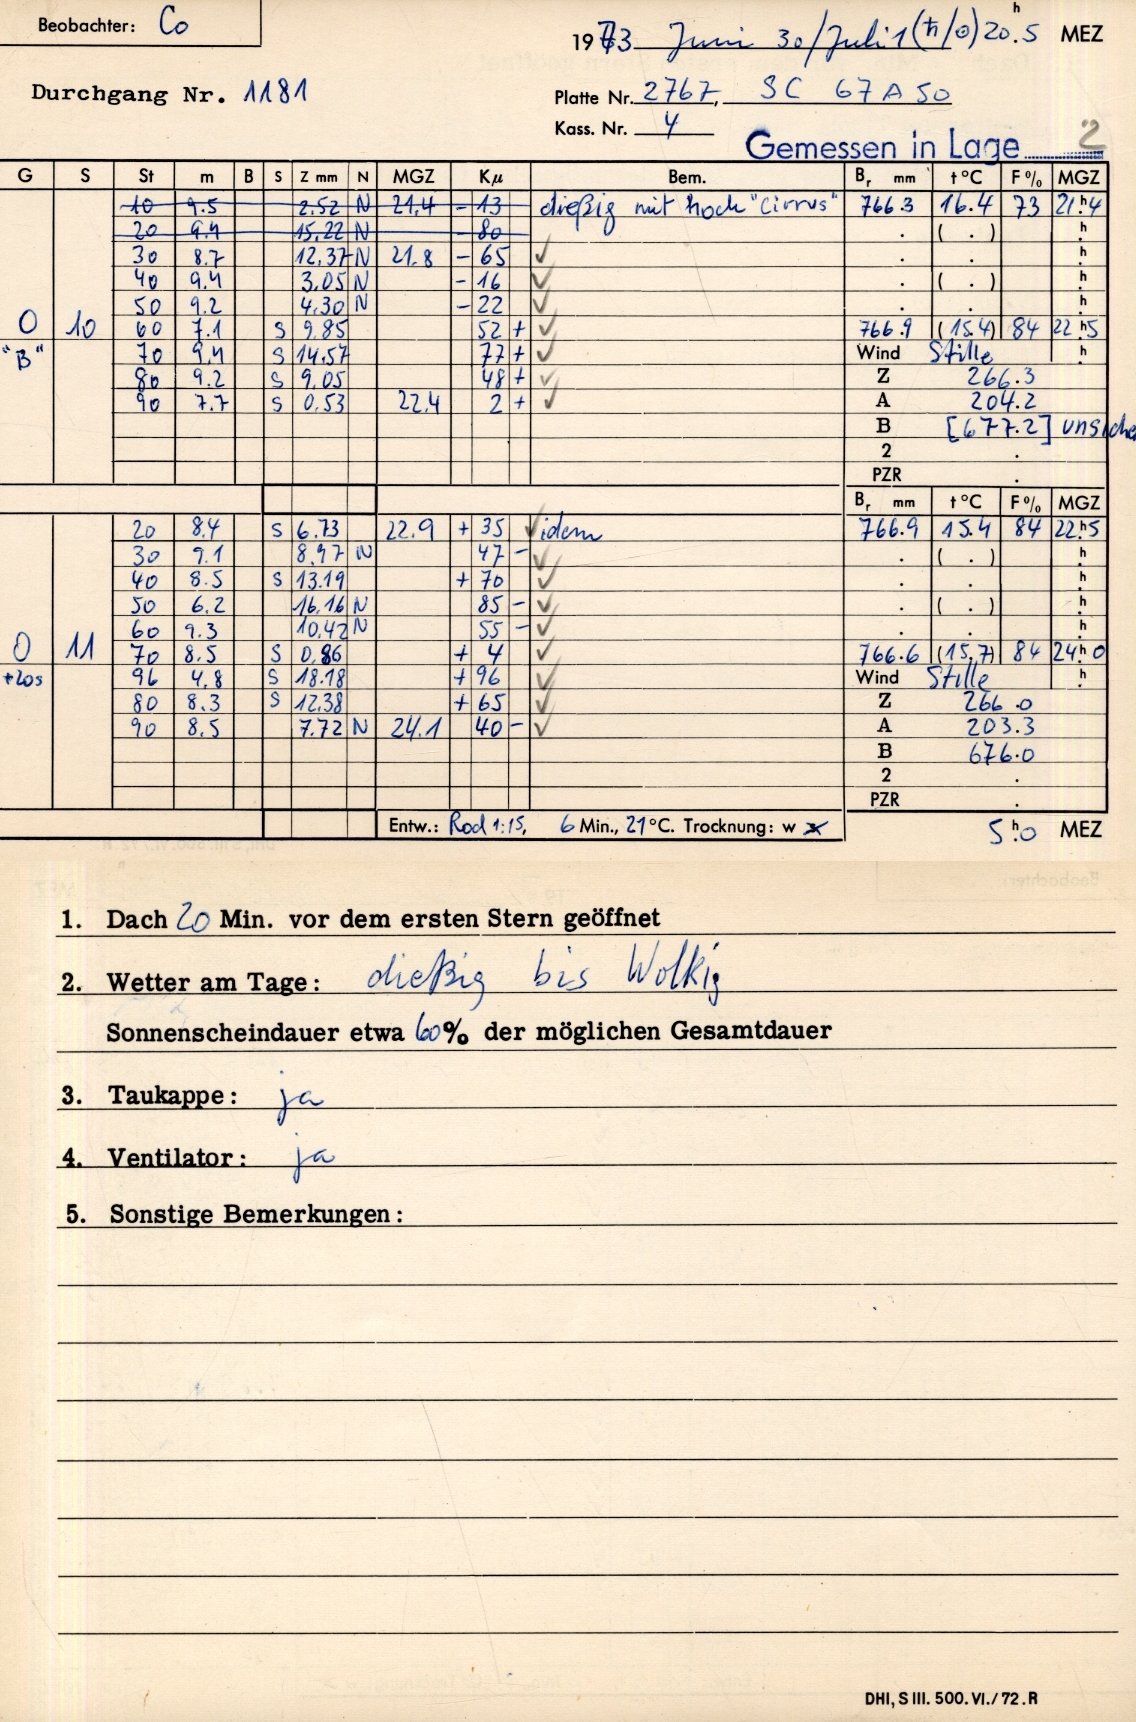 Beobachter: Co
1973 Juni 30/Juli 1 (♄/☉) 20.5 h MEZ
Durchgang Nr. 1181
Platte Nr. 2767, SC 67A50
Kass. Nr. 4
Gemessen in Lage 2
G S St m B S Z mm N MGZ Kμ Bem. Br mm t °C F% MGZ
10 9.5 2.52 N 21.4 - 13 dießig mit hoch "Cirrus" 766.3 16.4 73 21h4
20 9.4 15.22 N - 80 . ( . ) h
30 8.7 12.37 N 21.8 - 65 ✓ . . h
40 9.4 3.05 N - 16 ✓ . ( . ) h
50 9.2 4.30 N - 22 ✓ . . h
O 10 60 7.1 S 9.85 52 + ✓ 766.9 (15.4) 84 22h5
"B" 70 9.4 S 14.57 77 + ✓ Wind Stille h
80 9.2 S 9.05 48 + ✓ Z 266.3
90 7.7 S 0.53 22.4 2 + ✓ A 204.2
B [677.2] unsicher
2 .
PZR .
Br mm t °C F% MGZ
20 8.4 S 6.73 22.9 + 35 ✓ idem 766.9 15.4 84 22h5
30 9.1 8.97 N 47 - ✓ . ( . ) h
40 8.5 S 13.19 + 70 ✓ . . h
50 6.2 16.16 N 85 - ✓ . ( . ) h
60 9.3 10.42 N 55 - ✓ . . h
O 11 70 8.5 S 0.86 + 4 ✓ 766.6 (15.7) 84 24h0
+20s 96 4.8 S 18.18 + 96 ✓ Wind Stille h
80 8.3 S 12.38 + 65 ✓ Z 266.0
90 8.5 7.72 N 24.1 40 - ✓ A 203.3
B 676.0
2 .
PZR .
Entw.: Rod 1:15, 6 Min., 21 °C. Trocknung: w x 5h0 MEZ
1. Dach 20 Min. vor dem ersten Stern geöffnet
2. Wetter am Tage: dießig bis Wolkig
Sonnenscheindauer etwa 60% der möglichen Gesamtdauer
3. Taukappe: ja
4. Ventilator: ja
5. Sonstige Bemerkungen:
DHI, S III. 500. VI./72. R